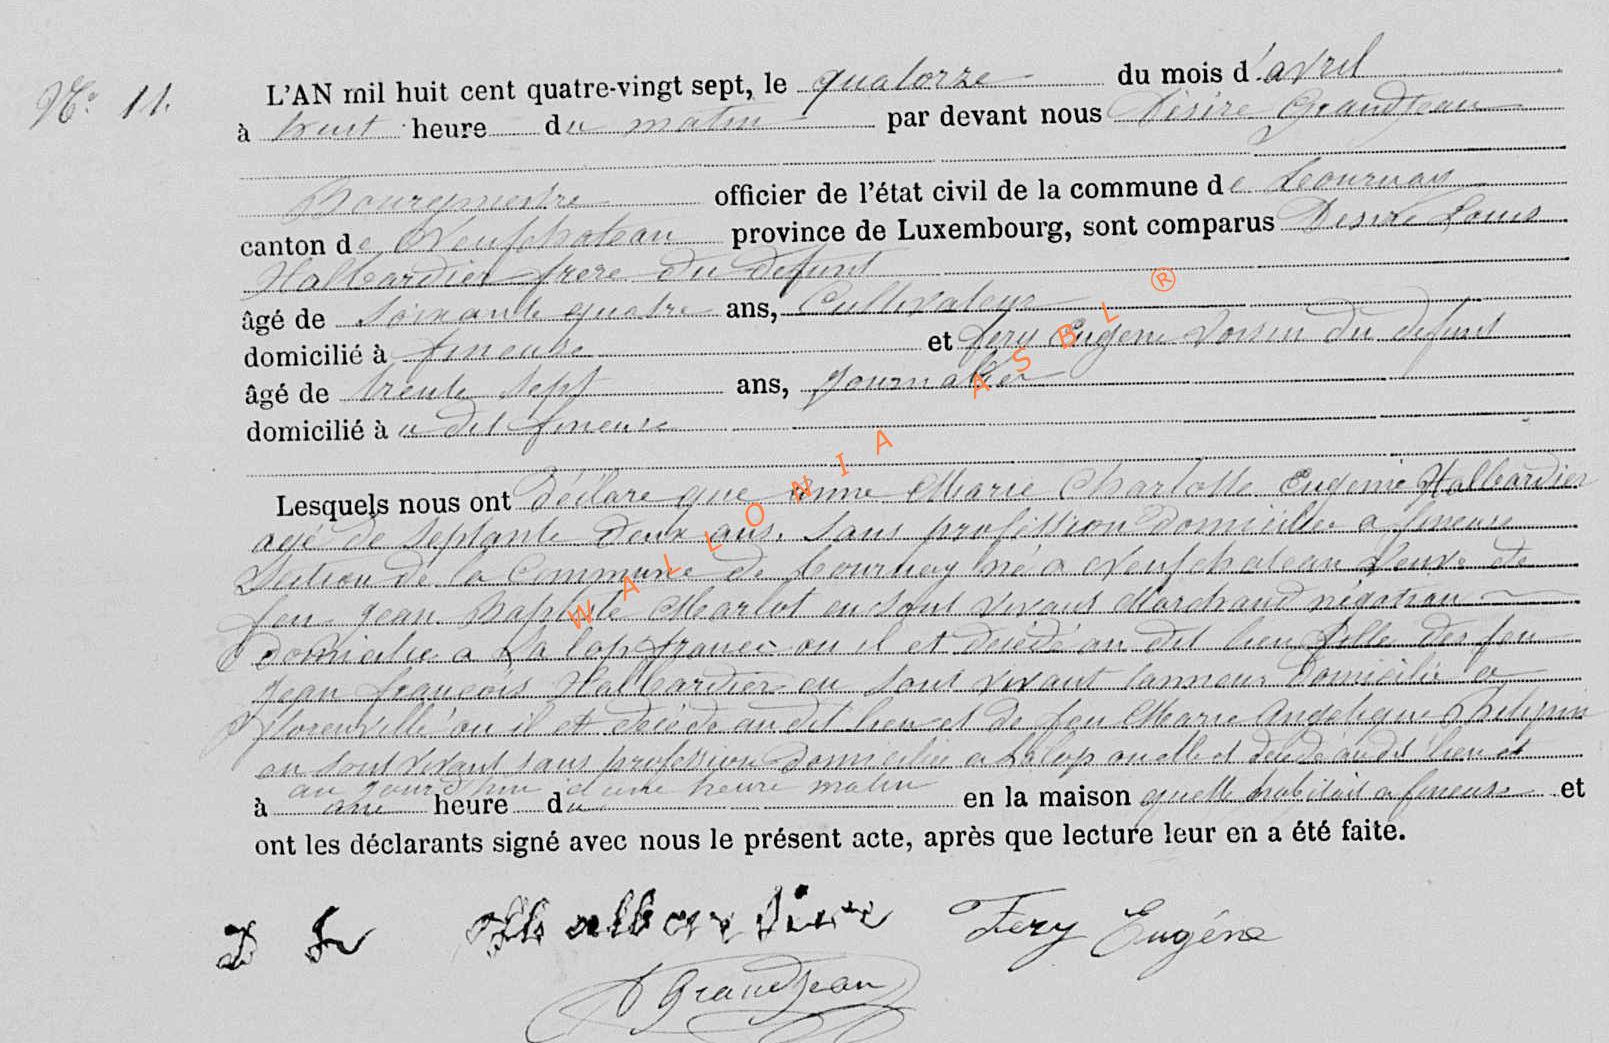 N° 11.
L'AN mil huit cent quatre-vingt sept, le quatorze du mois d'avril
à huit heure du matin par devant nous Désiré Grandjean
Bourgmestre officier de l'état civil de la commune de Tournay
canton de Neufchateau province de Luxembourg, sont comparus Desire Louis
Halbardier frere du defunt
âgé de soixante quatre ans, Cultivateur
domicilié à fineuse et Fery Eugene Voisin du defunt
âgé de trente sept ans, Journalier
domicilié à u dit fineuse
Lesquels nous ont déclare que Anne Marie Charlotte Eugenie Halbardier
agé de septante deux ans. sans profession domiciliee a fineuse
Section de la Commune de Tournay né a Neufchateau Veuve de
feu Jean Baptiste Marlot en sont vivant Marchand négotian
domicilie a france ou il et décédé au dit lieu fille des feu
Jean françois Halbardier en sont vivant tanneur domicilie a
florenville ou il et décédé au dit lieu et de feu Marie Angelique Philippin
en sont vivant sans profession domiciliee a ou elle et décédé au dit lieu et
au jourd'hui d'une heure matin
à une heure du en la maison quelle habitait a fineuse et
ont les déclarants signé avec nous le présent acte, après que lecture leur en a été faite.
D L Halbardier Fery Eugéne
D Grandjean
WALLONIA ASBL ®